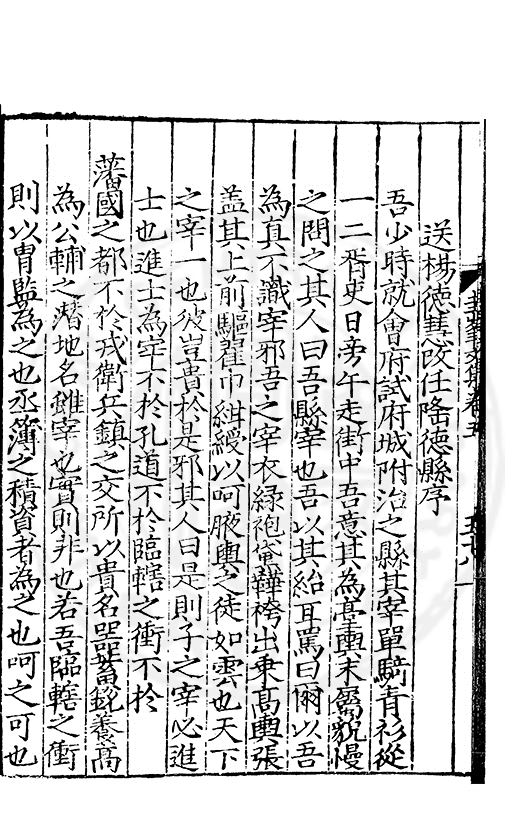 送楊德慧改任隆德縣序
吾少時就會府試府城附治之縣其宰單騎青衫從
一二胥史日旁午走街中吾意其為臺輿末屬貌慢
之問之其人曰吾縣宰也吾以其紿耳罵曰爾以吾
為真不識宰邪吾之宰衣綠袍黨鞾袴出乗高輿張
盖其上前驅翟巾紺綬以呵腋輿之徒如雲也天下
之宰一也彼豈貴於是邪其人曰是則子之宰必進
士也進士為宰不於孔道不於臨轄之衝不於
藩國之都不於戎衛兵鎮之交所以貴名器蓄銳養高
為公輔之潛地名雖宰也實則非也若吾臨轄之衝
則以胄監為之也丞簿之積資者為之也呵之可也